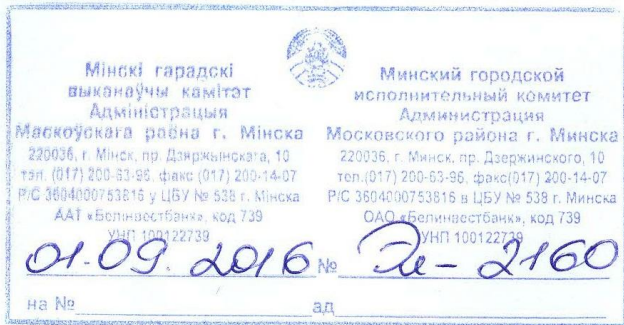 Мінскі гарадскі
выканаўчы камітэт
Адміністрацыя
Маскоўскага раёна г. Мінска
220036, г. Мінск, пр. Дзяржынскага, 10
тэл. (017) 200-63-96, факс (017) 200-14-07
Р/С 3604000753816 у ЦБУ № 539 г. Мінска
ААТ «Белінвестбанк», код 739
УНП 100122739
Минский городской
исполнительный комитет
Администрация
Московского района г. Минска
220036, г. Минск, пр. Дзержинского, 10
тел.(017) 200-63-96, факс(017) 200-14-07
Р/С 3604000753816 в ЦБУ № 539 г. Минска
ОАО «Белинвестбанк», код 739
УНП 100122739
01-09. 2016 № Эл-2160
на № ад